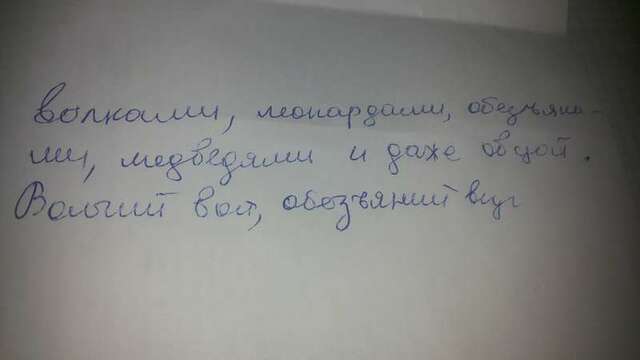 волками, леопардами, обезъяна-
ми, медведями и даже овцой.
Волчий вой, обезъяний визг